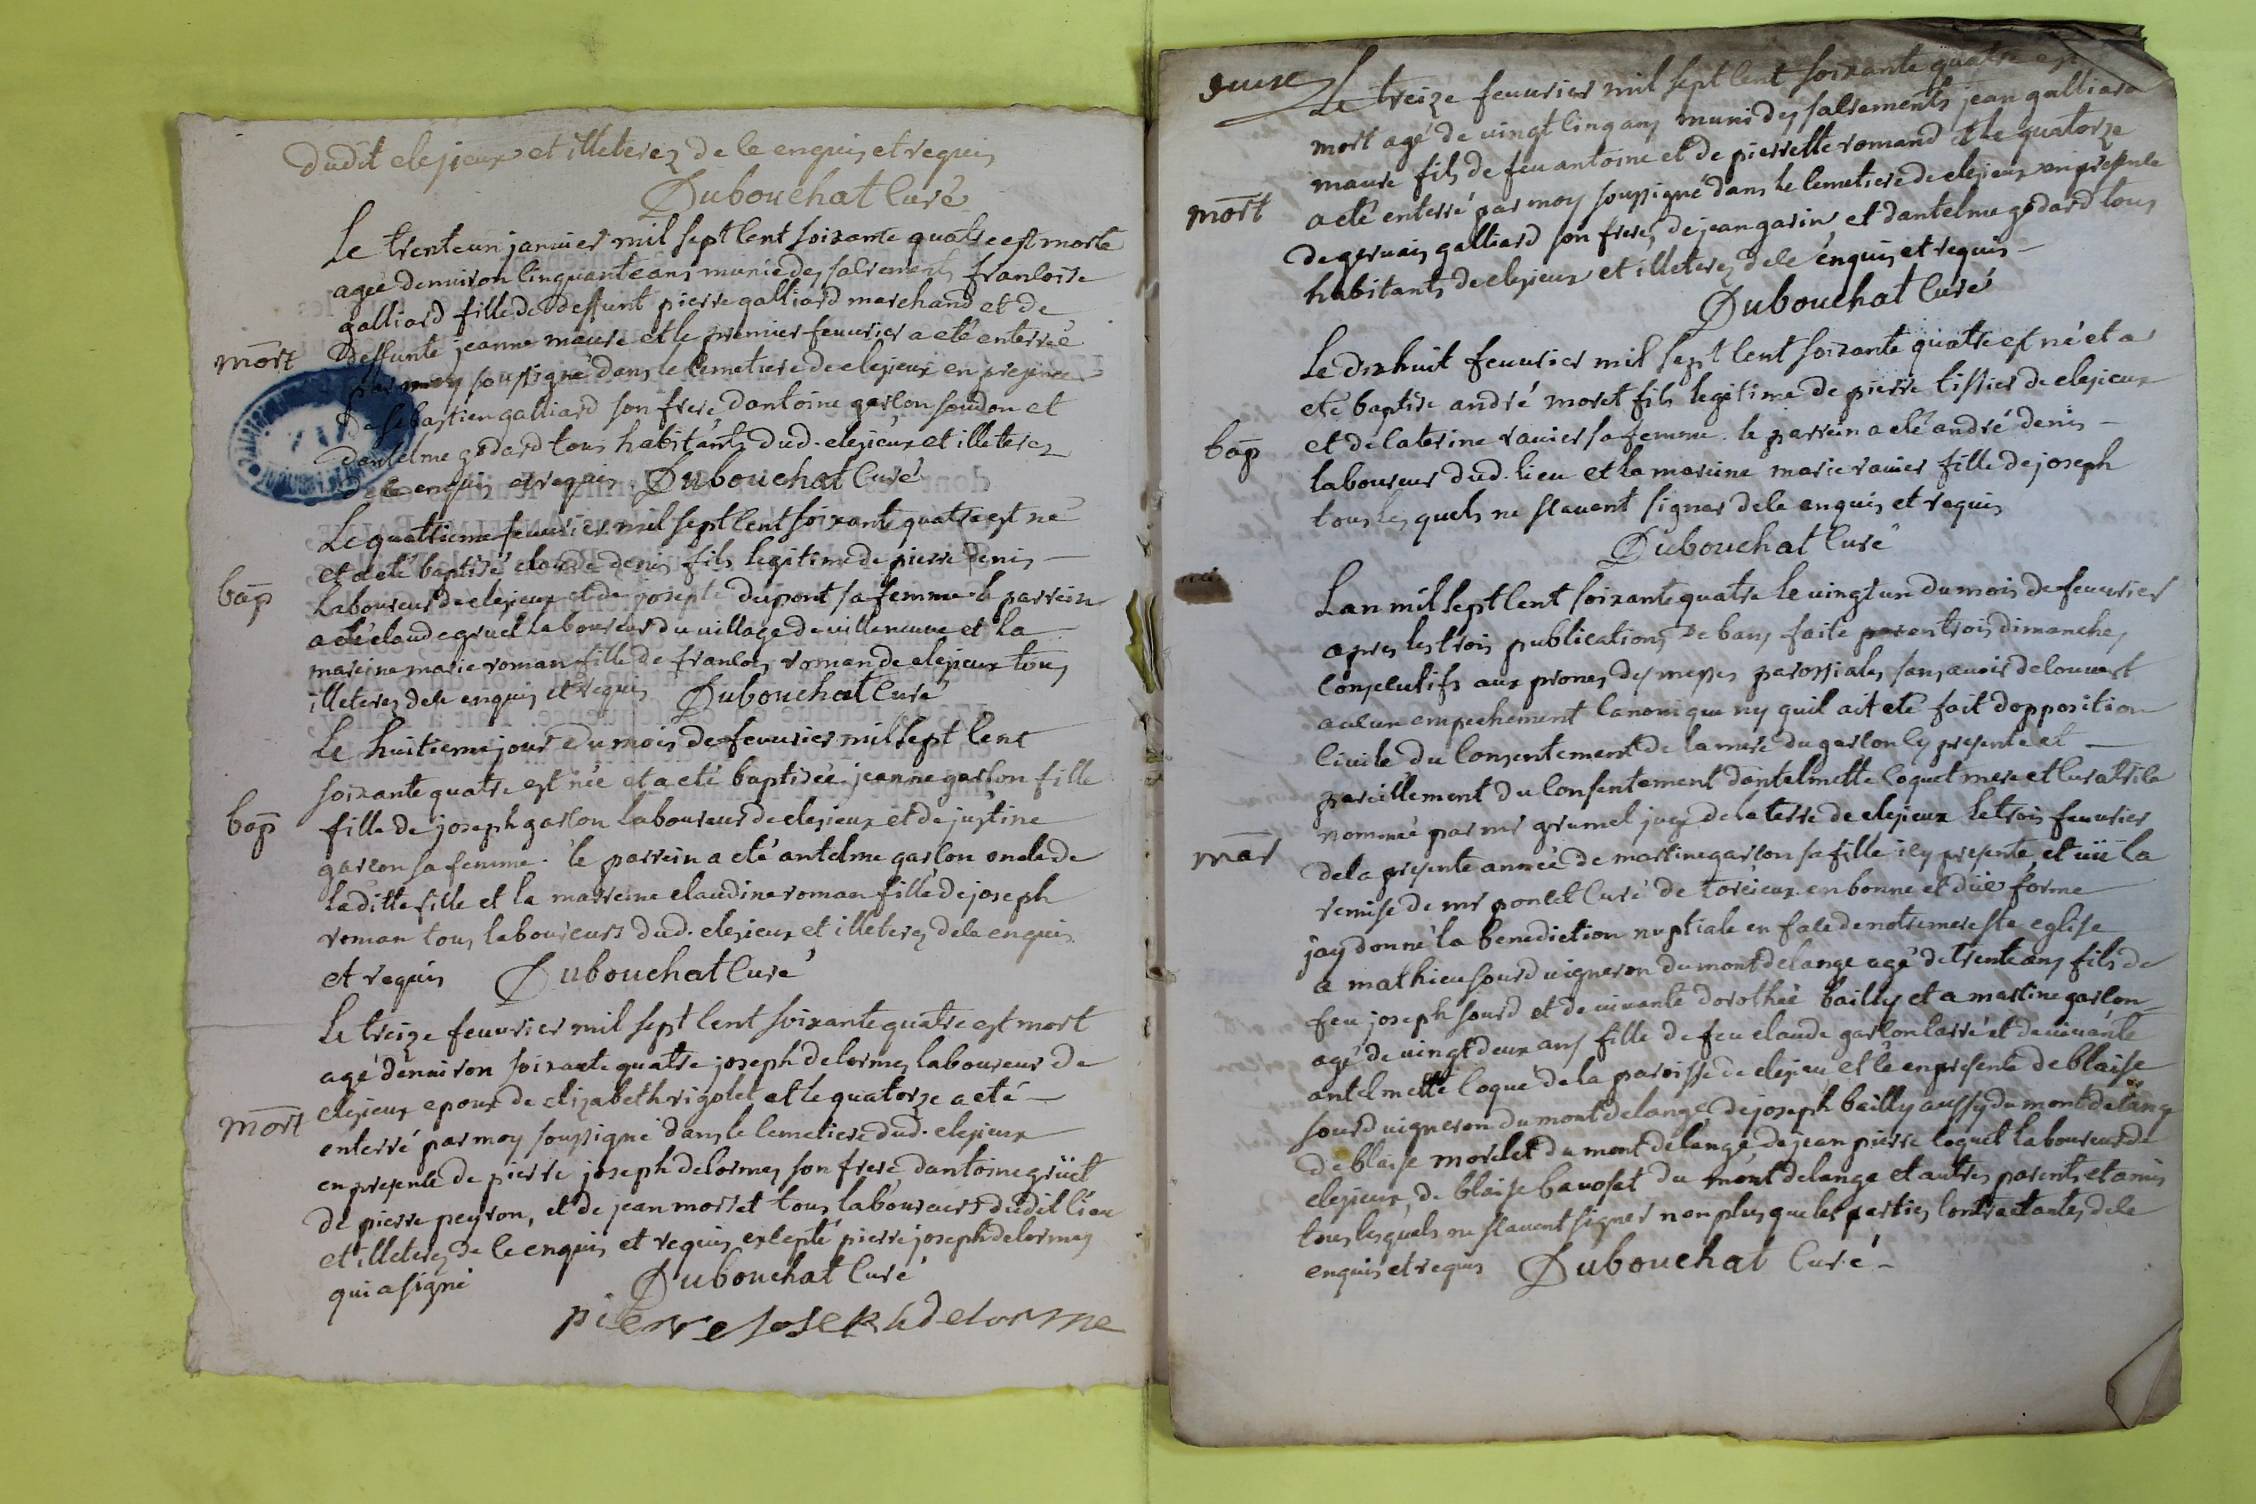 dudit clezieux et illeterez de ce enquis et requis
Dubouchat curé
mort
Le trente un janvier mil sept cent soixante quatre est morte
agée denviron cinquante ans munie des sacrements francoise
galliard fille de deffunt pierre galliard marchand et de
deffunte jeanne maure et le premier feuvrier a eté enterrée
par moy soussigné dans le cemetiere de clezieux en presence
de sebastien galliard son frere dantoine garcon soudon et
dantelme godard tous habitants dud. clezieux et illeterez
de ce enquis et requis. Dubouchat curé
bap
Le quatrieme feuvrier mil sept cent soixante quatre est né
et a eté baptisé claude denis fils legitime de pierre denis
laboureur de clezieux et de josepte dupont sa femme le parrein
a eté claude gruel laboureur du village de villeneuve et la
mareine marie roman fille de francois roman de clezieux tous
illeterez de ce enquis et requis Dubouchat curé
bap
Le huitieme jour du mois de feuvrier mil sept cent
soixante quatre est née et a eté baptisée jeanne garcon fille
fille de joseph garcon laboureur de clezieux et de justine
garcon sa femme. le parrein a eté antelme garcon oncle de
laditte fille et la marreine claudine roman fille de joseph
roman tous laboureurs dud. clezieux et illeterez de ce enquis
et requis Dubouchat curé
mort
Le treize feuvrier mil sept cent soixante quatre est mort
agé denviron soixante quatre joseph delormes laboureur de
clezieux epoux de elizabeth rigolet et le quatorze a eté
enterré par moy soussigné dans le cemetiere dud. clezieux
en presence de pierre joseph delormes son frere, dantoine grüel
de pierre peyron, et de jean morret tous laboureurs dudit lieu
et illeterez de ce enquis et requis excepté pierre joseph delormes
qui a signé Dubouchat curé
pierre Joseph delorme
mort
Le treize feuvrier mil sept cent soixante quatre est
mort agé de vingt cinq ans muni des sacrements jean galliard
maure fils de feu antoine et de pierrette romand et le quatorze
a eté enterré par moy soussigné dans le cemetiere de clezieux en presence
de gervais galliard son frere, de jean garin et dantelme godard tous
habitants de clezieux et illeterez de ce enquis et requis
Dubouchat curé
bap
Le dix huit feuvrier mil sept cent soixante quatre est né et a
eté baptisé andré moret fils legitime de pierre tissier de clezieux
et de caterine ravier sa femme. le parrein a eté andré denis
laboureur dud. lieu et la mareine marie ravier fille de joseph
tous les quels ne scavent signer de ce enquis et requis
Dubouchat curé
mar
Lan mil sept cent soixante quatre le vingt un du mois de feuvrier
apres les trois publications de bans faite par en trois dimanches
consecutifs aux prones des messes parossiales sans avoir decouvert
aucun empechement canonique ny quil ait eté fait dopposition
civile du consentement de la mere du garcon cy presente et
pareillement du consentement dantelmette coquet mere et curatrice
nommée par mr grumel juge de la terre de clezieux le trois feuvrier
de la presente année de martine garcon sa fille icy presente, et vüe la
remise de mr poncet curé de torcieux en bonne et düe forme
jay donné la benediction nuptiale en face de notre mere ste eglise
a mathieu sourd vigneron du mont delange agé de trente ans fils de
feu joseph sourd et de vivante dorothée bailly et a martine garcon
agé de vingt deux ans fille de feu claude garcon carré et de vivante
antelmette coque de la paroisse de clezieu et ce en presence de blaise
sourd vigneron du mont delange, de joseph bailly aussy du mont delange
de blaise morelet du mont delange, de jean pierre coquet laboureur de
clezieux, de blaise bavoset du mont delange et autres parents et amis
tous lesquels ne scavent signer non plus que les parties contractantes de ce
enquis et requis Dubouchat curé